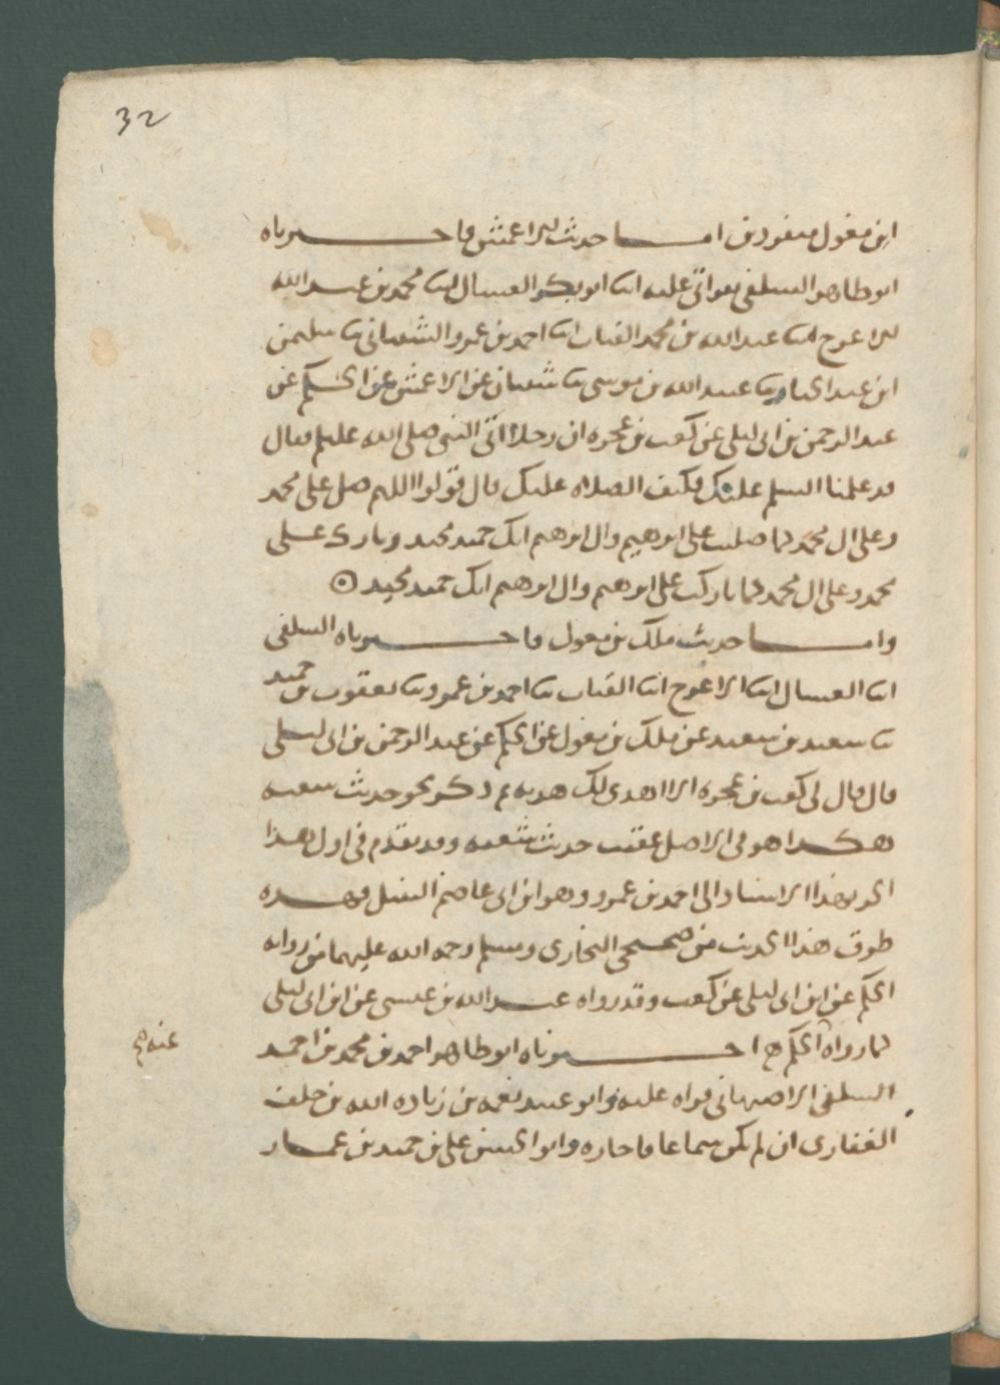 32
ابن مغول منفردين امـــا حديث الاعمش فاخـــبرناه
ابو طاهر السلفي بقراتي عليه انا ابو بكر العسال انا محمد بن عبد الله
الاعرج انا عبد الله بن محمد القباب انا احمد بن عمرو الشيباني نا سليمن
ابن عبد الجبار نا عبيد الله بن موسى نا شيبان عن الاعمش عن الحكم عن
عبد الرحمن بن ابي ليلى عن كعب بن عجره ان رجلا اتى النبي صلى الله عليه وسلم فقال
قد علمنا السلم عليك فكيف الصلاه عليك قال قولوا اللهم صل على محمد
وعلى ال محمد كما صليت على ابرهيم وال ابرهيم انك حميد مجيد وبارك عـــلى
محمد وعلى ال محمد كما باركت على ابرهيم وال ابرهيم انك حميد مجيد ⊙
وامـــا حديث ملك بن مغول فاخـــبرناه السلفي
انا العسال انا الاعرج انا القباب نا احمد بن عمرو نا يعقوب بن حميد
نا سعيد بن سعيد عن ملك بن مغول عن الحكم عن عبد الرحمن بن ابي ليلى
قال قال لي كعب بن عجره الا اهدي لك هديه ثم ذكر نحو حديث شعبه
هكـــذا هو في الاصل عقيب حديث شعبه وقد تقدم في اول هذا
الجزء بهذا الاسناد الى احمد بن عمرو وهو ابن ابي عاصم النبيل فهـــذه
طرق هذا الحديث من صحيحي البخاري ومسلم رحمه الله عليهما من روايه
الحكم عن ابن ابي ليلى عن كعب وقد رواه عبـــد الله بن عيسى عن ابن ابي ليلى
كما رواه الحكم ح اخـــبرناه ابو طاهر احمد بن محمد بن احمد
عنه
السلفي الاصبهاني قراه عليه وابو عبيد نعمه بن زياده الله بن خلف
الغفاري ان لم يكن سماعا فاجازه وابو الحسن علي بن حميد بن عمـــار